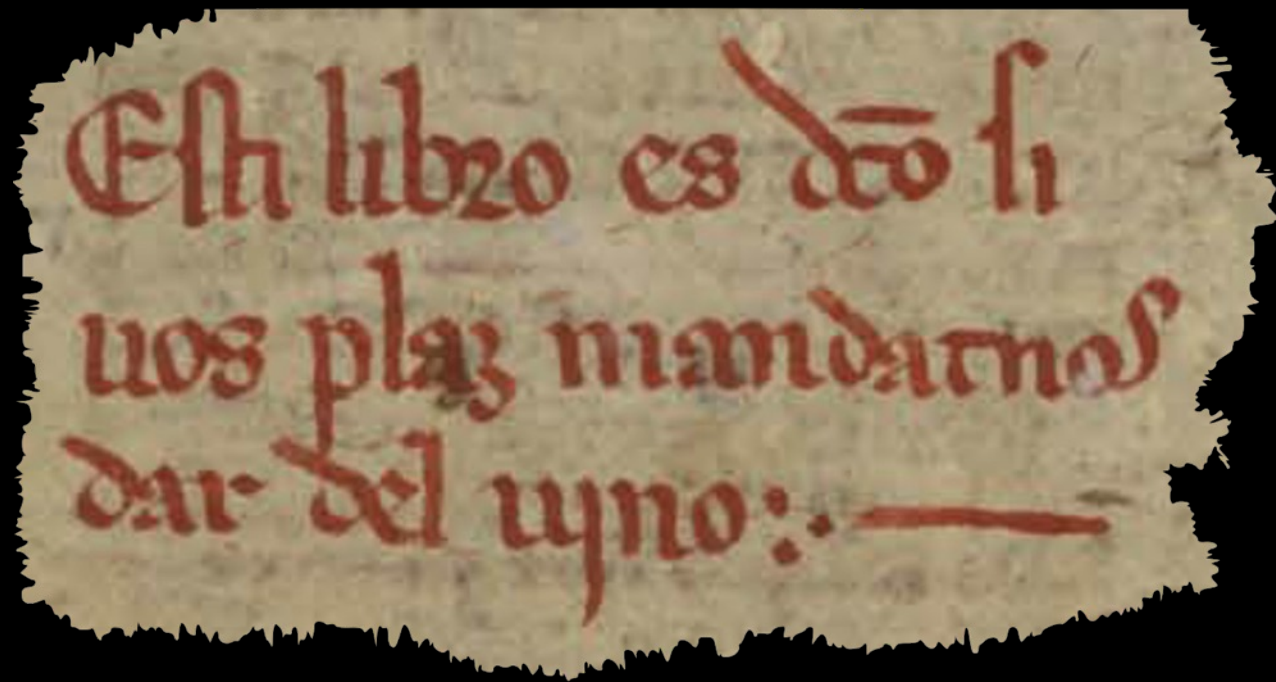 Esti libro es dc̄o si
uos plaz mandatnos
dar del uyno :·—